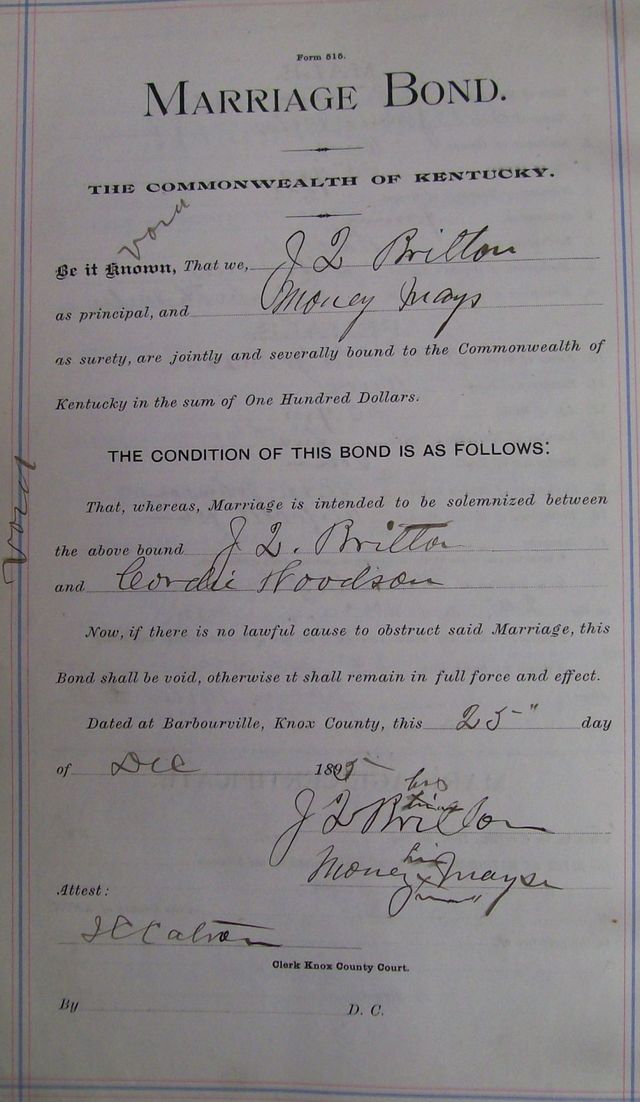 Form 515.
MARRIAGE BOND.
THE COMMONWEALTH OF KENTUCKY.
void
Be it Known, That we, J Q Britton
as principal, and Money Mays
as surety, are jointly and severally bound to the Commonwealth of
Kentucky in the sum of One Hundred Dollars.
THE CONDITION OF THIS BOND IS AS FOLLOWS:
void
That, whereas, Marriage is intended to be solemnized between
the above bound J Q. Britton
and Cordie Woodson
Now, if there is no lawful cause to obstruct said Marriage, this
Bond shall be void, otherwise it shall remain in full force and effect.
Dated at Barbourville, Knox County, this 25" day
of Dec 1895
his
J Q Britton
his
Money Mays
Attest:
Clerk Knox County Court.
By D. C.